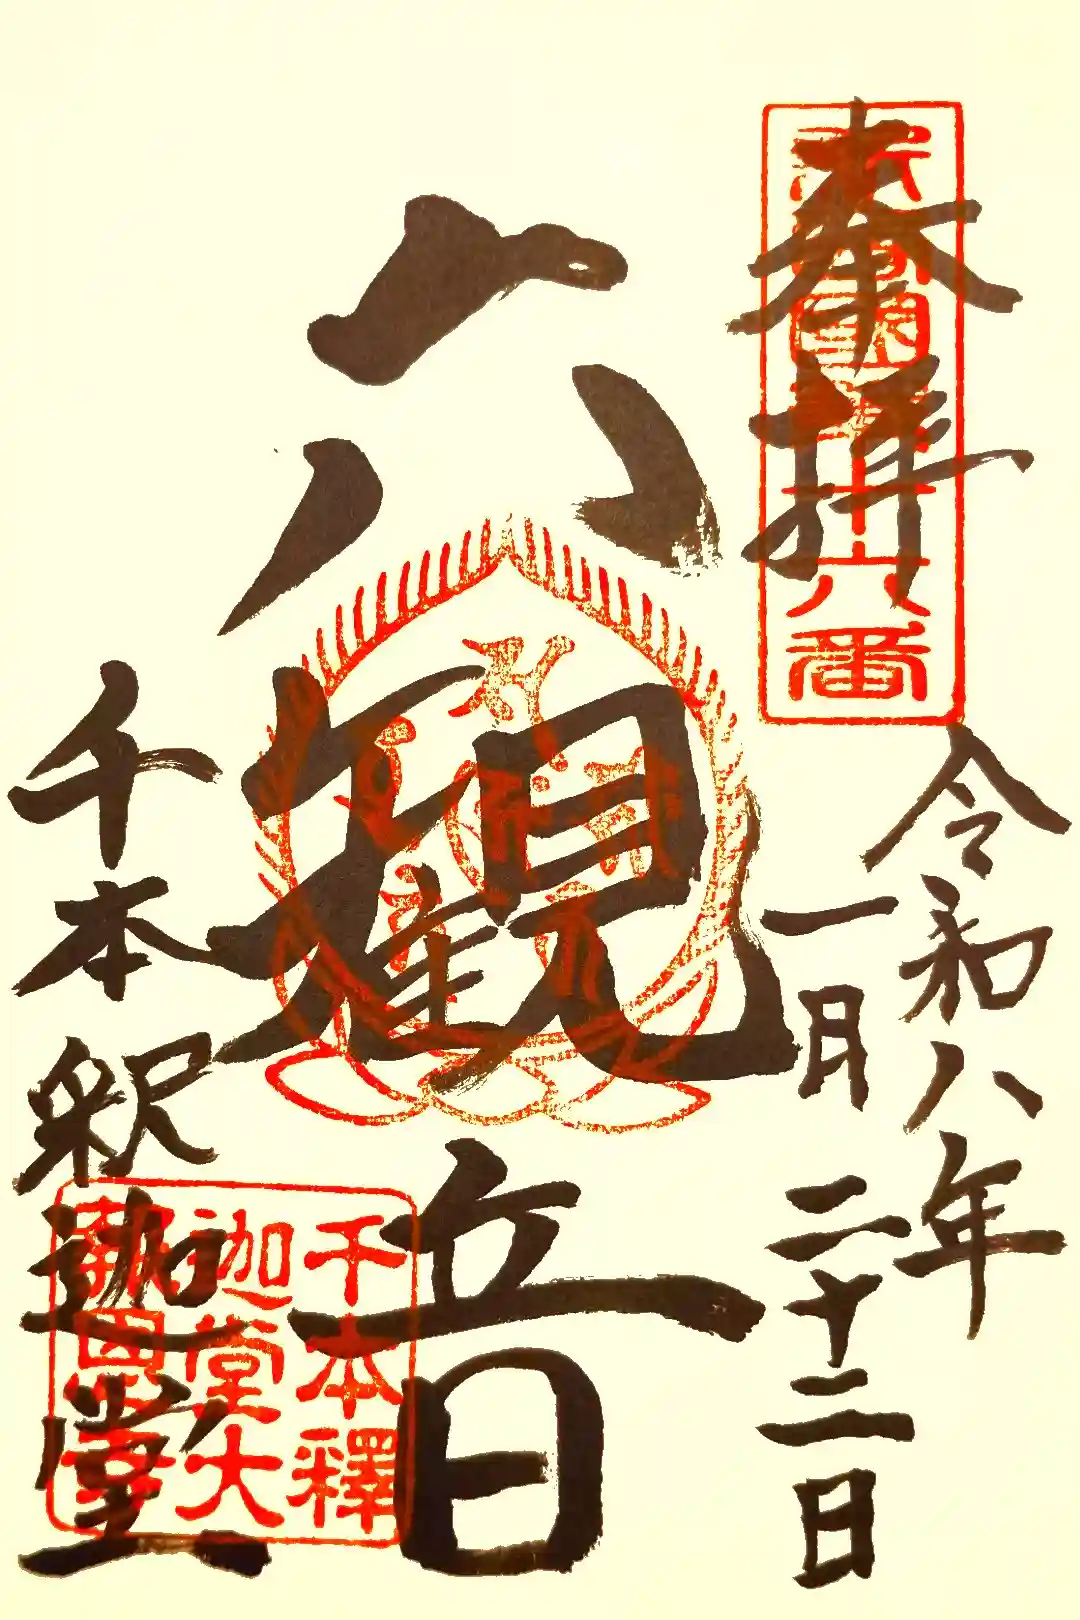 奉拝
十六番
令和八年
一月二十二日
六観音
千本釈迦堂
千本釋
迦堂大
報恩寺